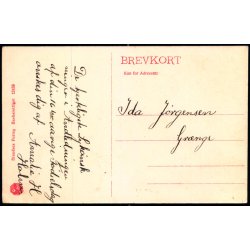 BREVKORT
Kun for Adressen
Ida Jørgensen
Grænge
De hjerteligste Lykønsk
ninger i Anledningen
af din 16 aarige Fødselsdag
ønskes dig af Amalie H
Holm